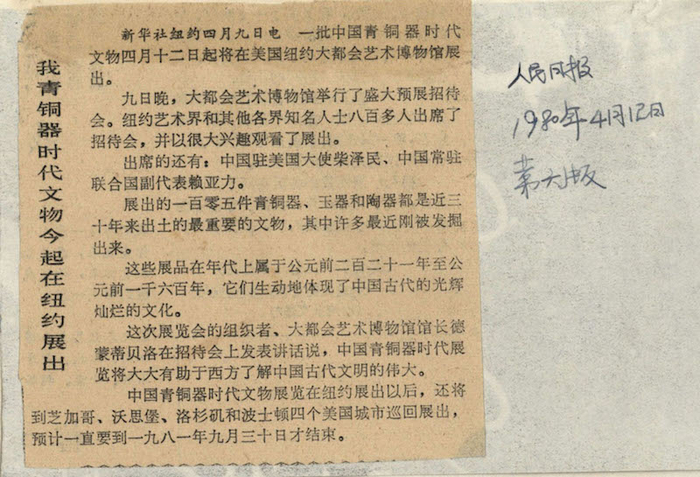 我青铜器时代文物今起在纽约展出
新华社纽约四月九日电　一批中国青铜器时代
文物四月十二日起将在美国纽约大都会艺术博物馆展
出。
九日晚，大都会艺术博物馆举行了盛大预展招待
会。纽约艺术界和其他各界知名人士八百多人出席了
招待会，并以很大兴趣观看了展出。
出席的还有：中国驻美国大使柴泽民、中国常驻
联合国副代表赖亚力。
展出的一百零五件青铜器、玉器和陶器都是近三
十年来出土的最重要的文物，其中许多最近刚被发掘
出来。
这些展品在年代上属于公元前二百二十一年至公
元前一千六百年，它们生动地体现了中国古代的光辉
灿烂的文化。
这次展览会的组织者、大都会艺术博物馆馆长德
蒙蒂贝洛在招待会上发表讲话说，中国青铜器时代展
览将大大有助于西方了解中国古代文明的伟大。
中国青铜器时代文物展览在纽约展出以后，还将
到芝加哥、沃思堡、洛杉矶和波士顿四个美国城市巡回展出，
预计一直要到一九八一年九月三十日才结束。
人民日报
1980年4月12日
第六版